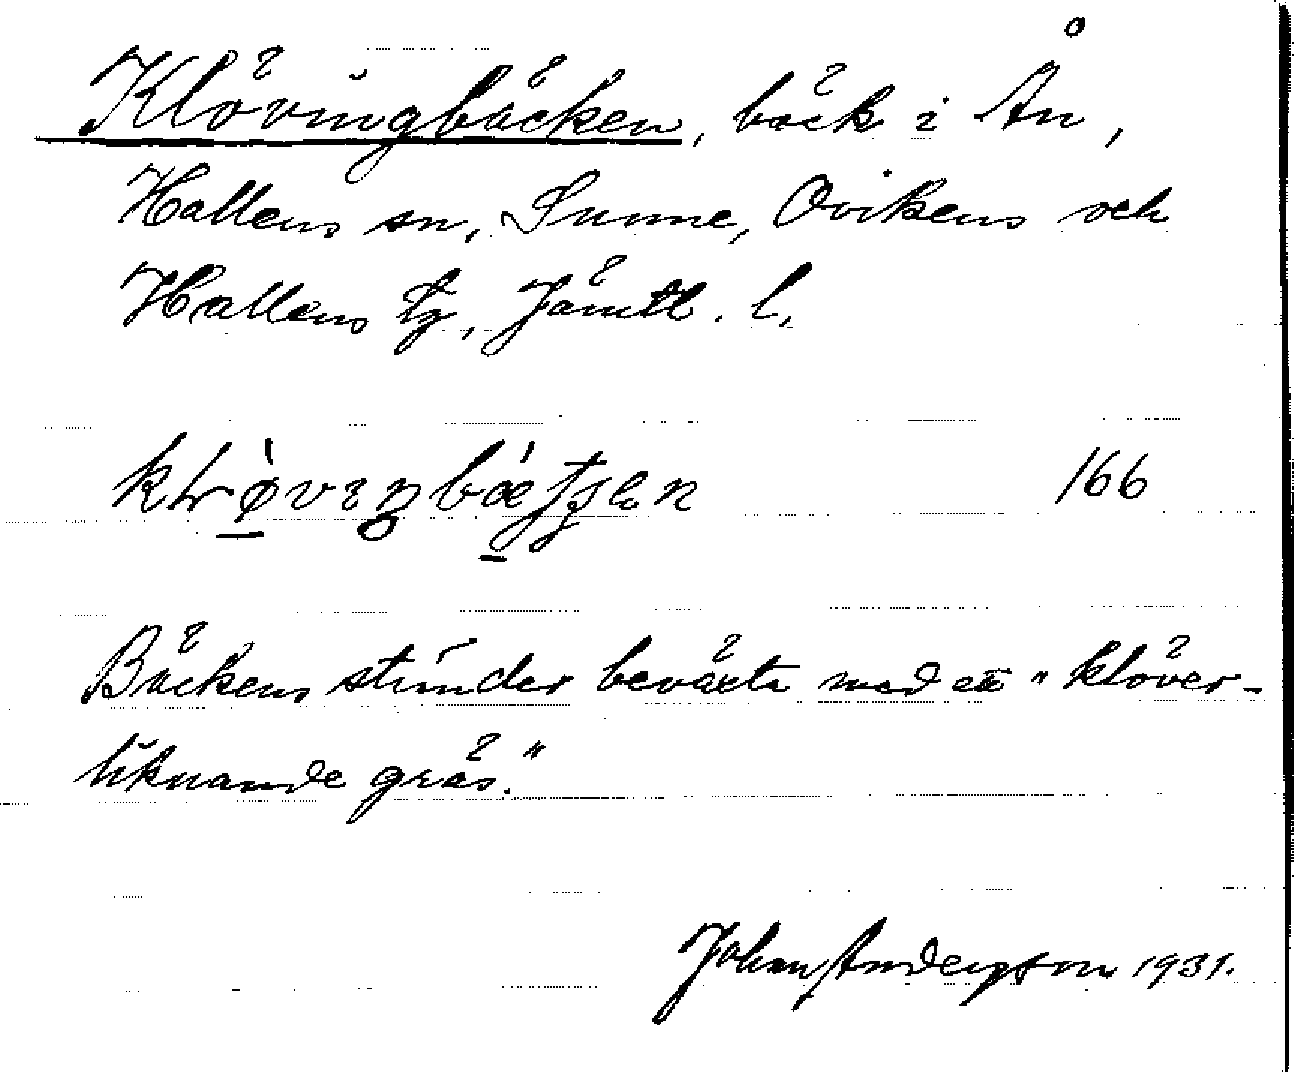 Klövingbäcken, bäck i Ån,
Hallens sn, Sunne, Ovikens och
Hallens tg, Jämtl. l.
166
Bäckens stränder beväxta med ett "klöver-
liknande gräs."
Johan Anderson 1931.